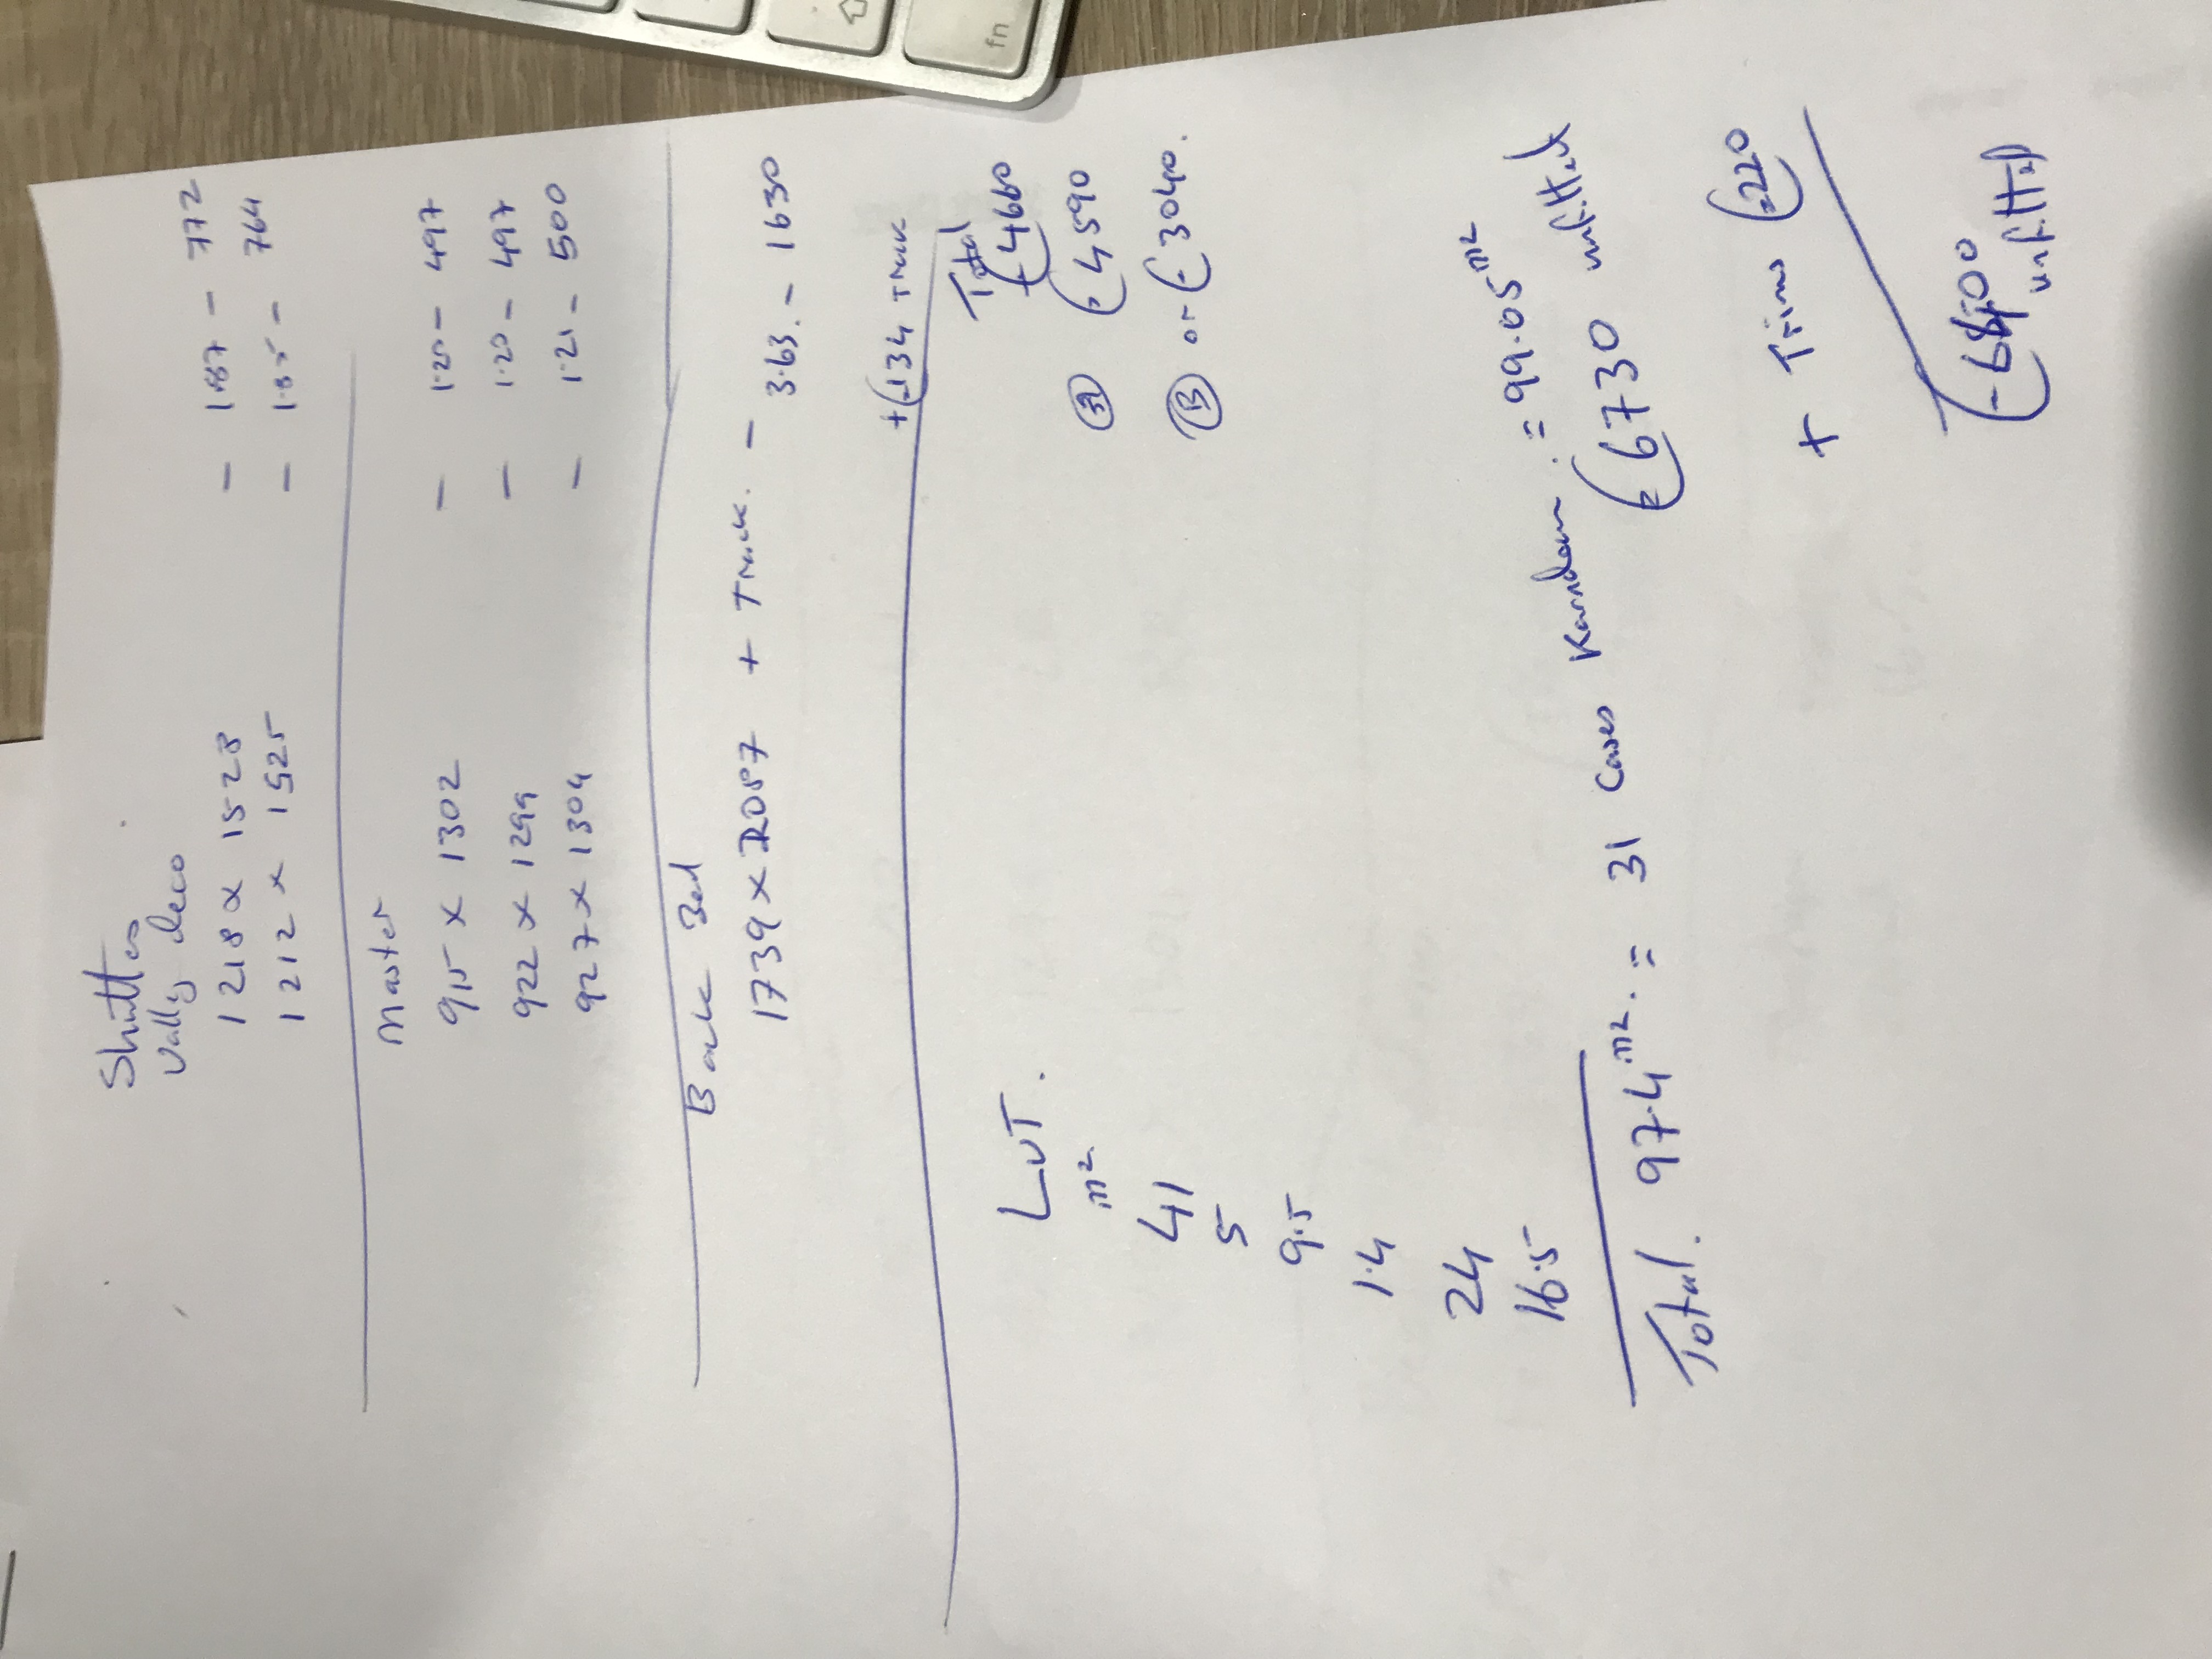 Shutters
Vally deco
1218 x 1528 - 1.87 - 772
1212 x 1525 - 1.85 - 764
Master
915 x 1302 - 1.20 - 497
922 x 1299 - 1.20 - 497
927 x 1304 - 1.21 - 500
Back Bed
1739 x 2087 + Track. - 3.63. - 1630
+ £134 Track
Total
£4660
A £4590
B or £3040.
LVT.
m²
41
5
9.5
1.4
24
16.5
Total. 97.4m². = 31 Cases Karndean. = 99.05m²
£6730 unfitted
+ Trims £220
unfitted
fn